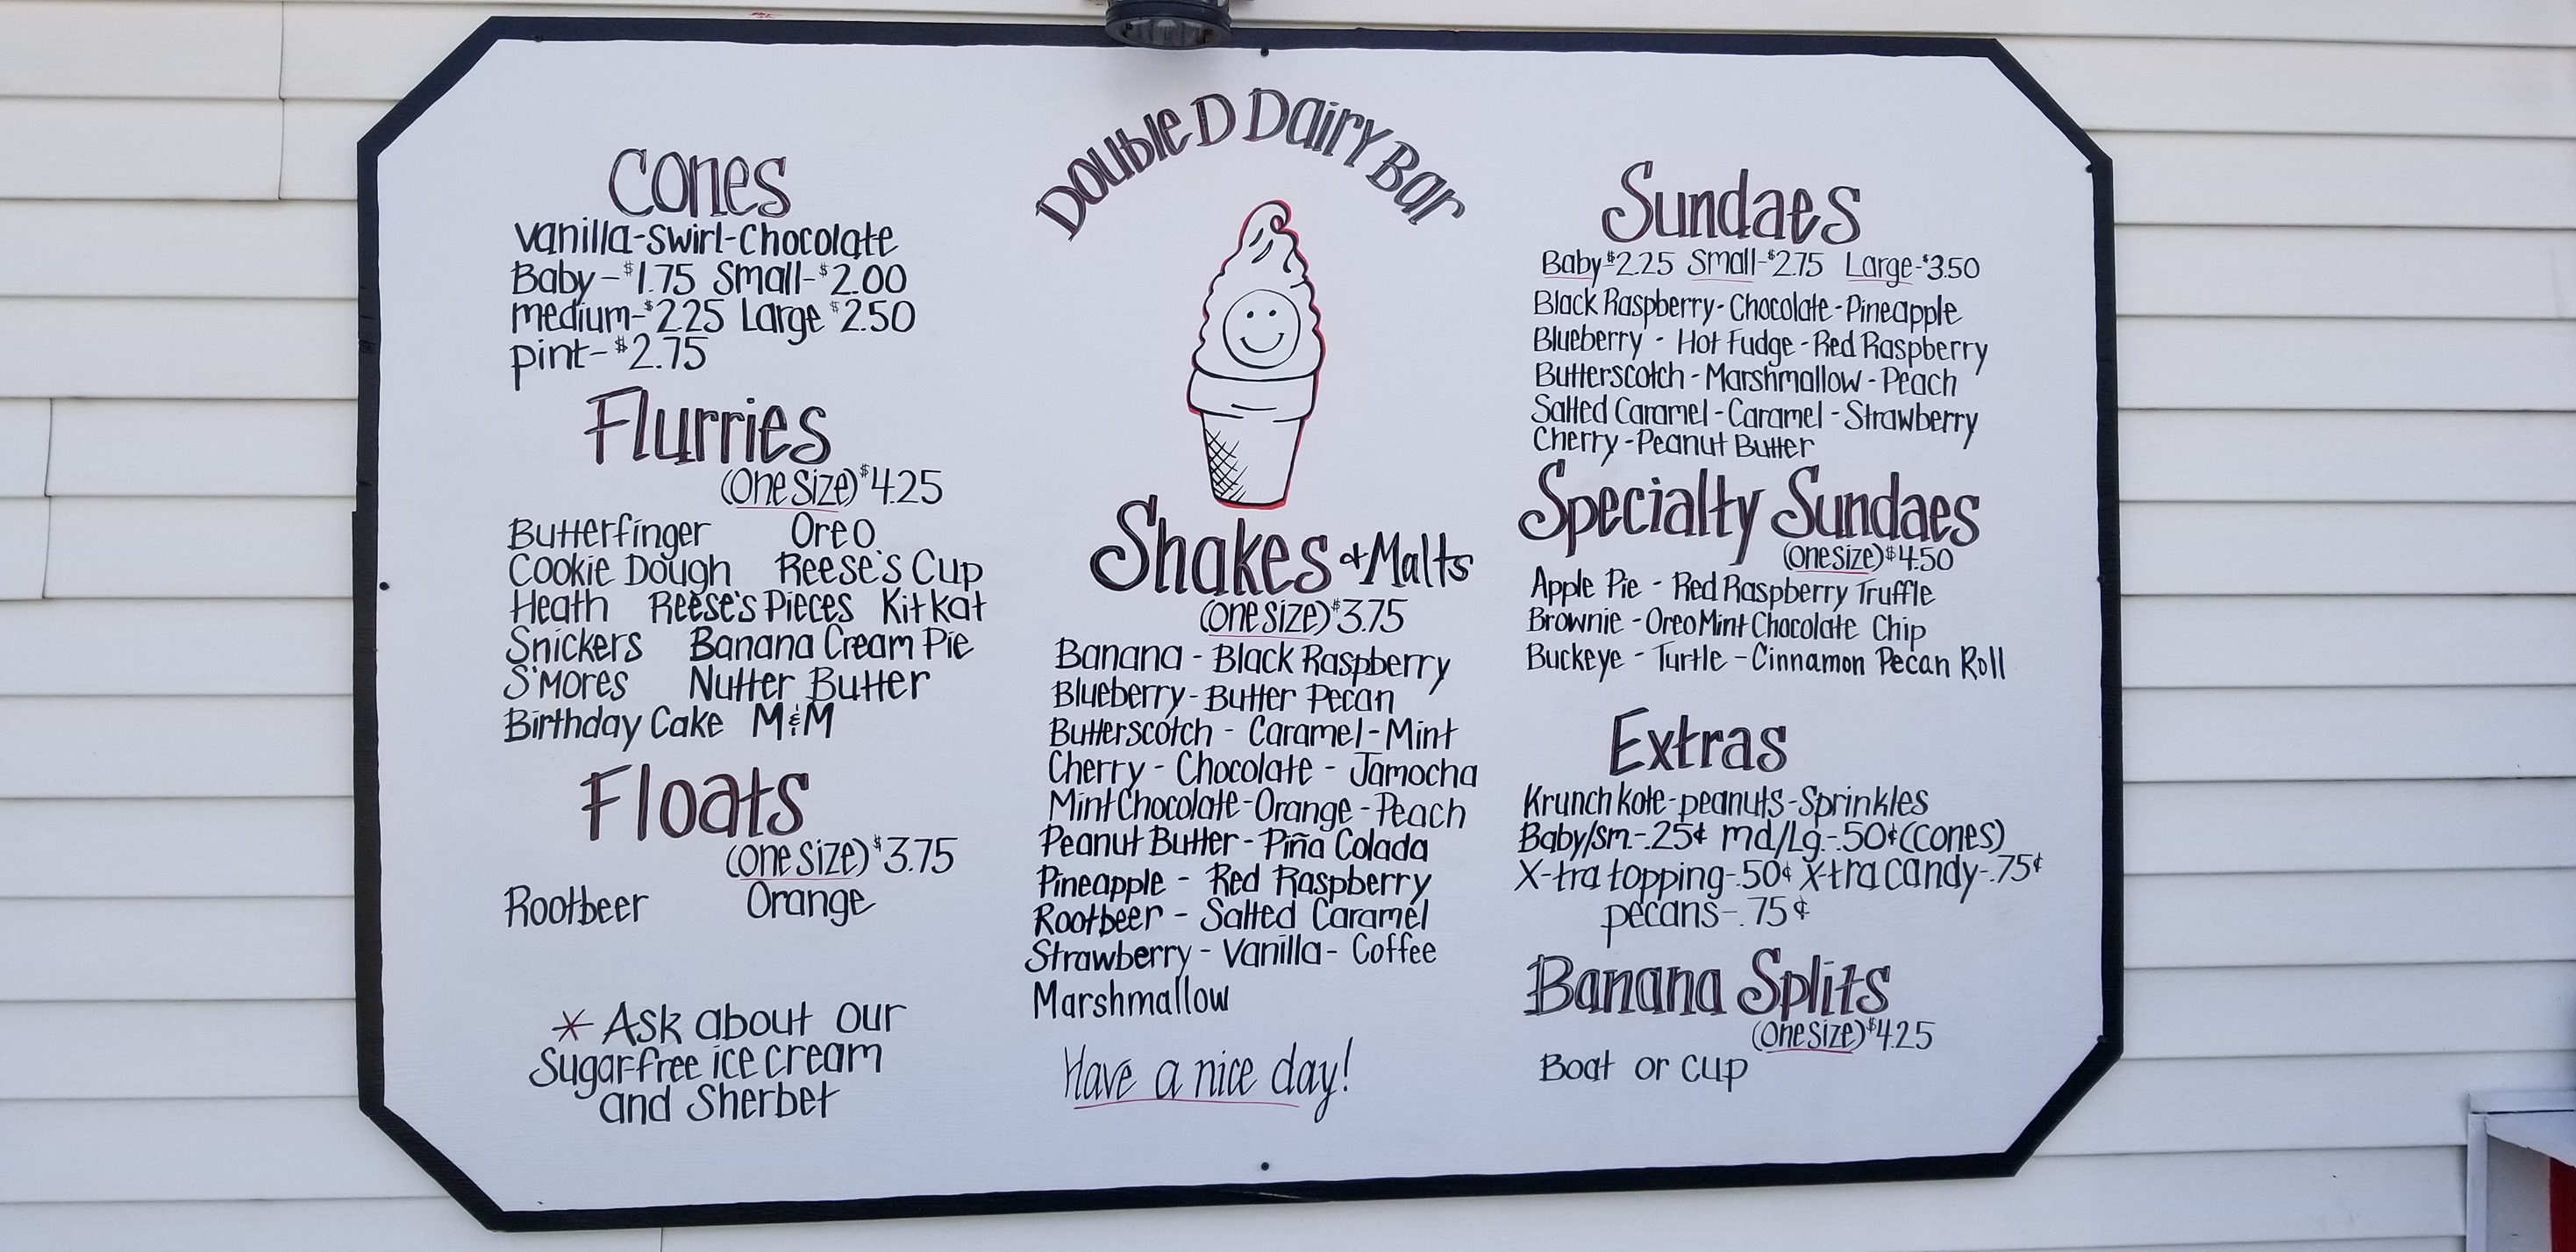 Double D Dairy Bar
Cones
Vanilla-Swirl-Chocolate
Baby-$1.75 Small-$2.00
medium-$2.25 Large $2.50
pint-$2.75
Flurries
(One Size) $4.25
Butterfinger Oreo
Cookie Dough Reese's Cup
Heath Reese's Pieces Kit kat
Snickers Banana Cream Pie
S'mores Nutter Butter
Birthday Cake M&M
Floats
(One Size) $3.75
Rootbeer Orange
* Ask about our
Sugar-free ice cream
and Sherbet
Shakes & Malts
(One Size) $3.75
Banana - Black Raspberry
Blueberry - Butter Pecan
Butterscotch - Caramel - Mint
Cherry - Chocolate - Jamocha
Mint Chocolate - Orange - Peach
Peanut Butter - Piña Colada
Pineapple - Red Raspberry
Rootbeer - Salted Caramel
Strawberry - Vanilla - Coffee
Marshmallow
Have a nice day!
Sundaes
Baby $2.25 Small-$2.75 Large-$3.50
Black Raspberry - Chocolate - Pineapple
Blueberry - Hot Fudge - Red Raspberry
Butterscotch - Marshmallow - Peach
Salted Caramel - Caramel - Strawberry
Cherry - Peanut Butter
Specialty Sundaes
(One Size) $4.50
Apple Pie - Red Raspberry Truffle
Brownie - Oreo Mint Chocolate Chip
Buckeye - Turtle - Cinnamon Pecan Roll
Extras
Krunch kote-peanuts-Sprinkles
Baby/sm-.25¢ md/Lg-.50¢ (cones)
X-tra topping-.50¢ X-tra candy-.75¢
pecans-.75¢
Banana Splits
(One Size) $4.25
Boat or cup